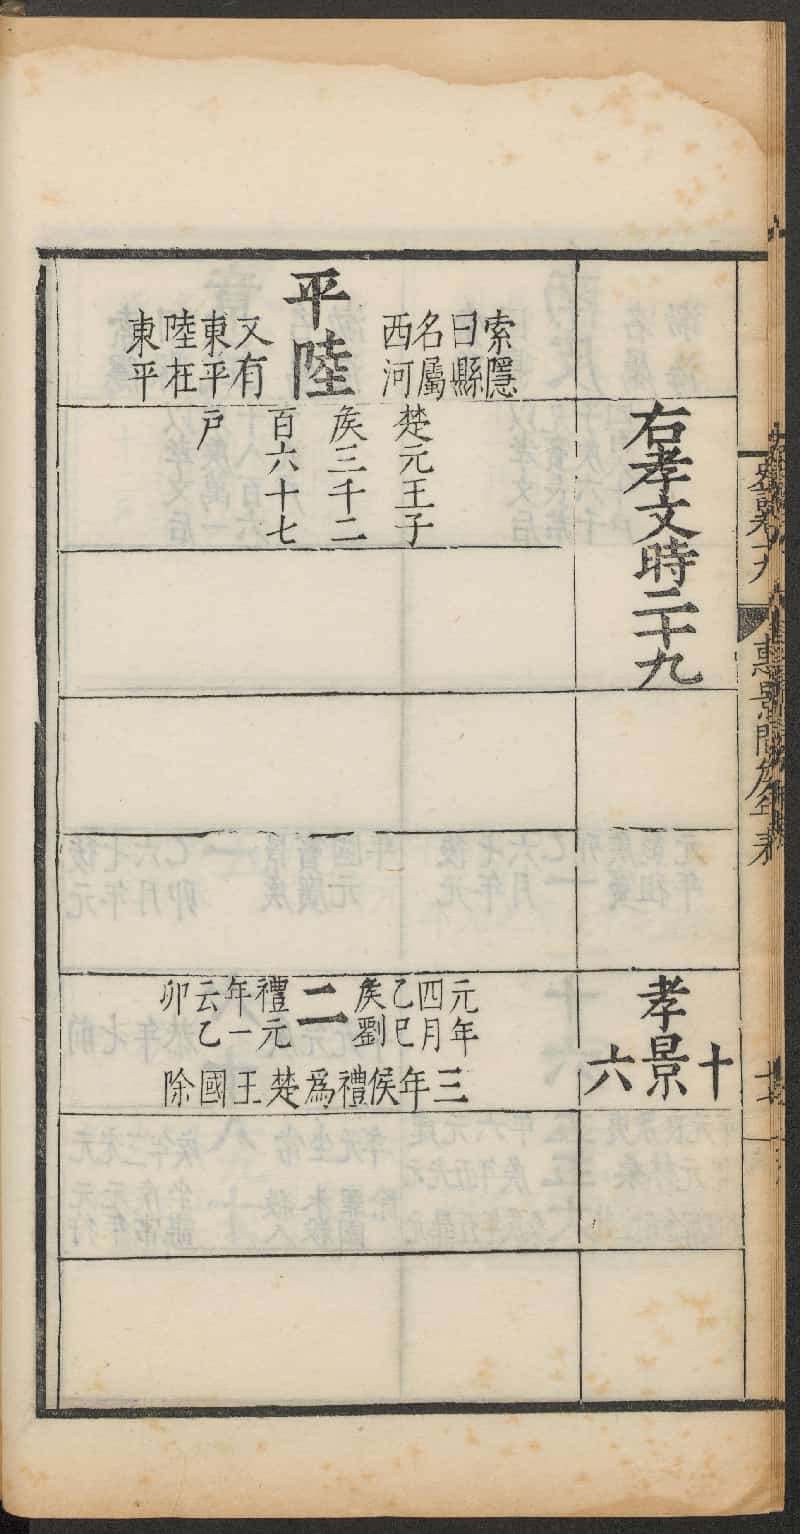 史記卷十九
惠景間侯年表
右孝文時二十九
孝景
十六
索隱
曰縣
名屬
西河
平陸
又有
東平
陸在
東平
楚元王子
矦三千二
百六十七
戶
元年
四月
乙巳
矦劉
二
禮元
年一
云乙
卯
三年侯禮爲楚王國除